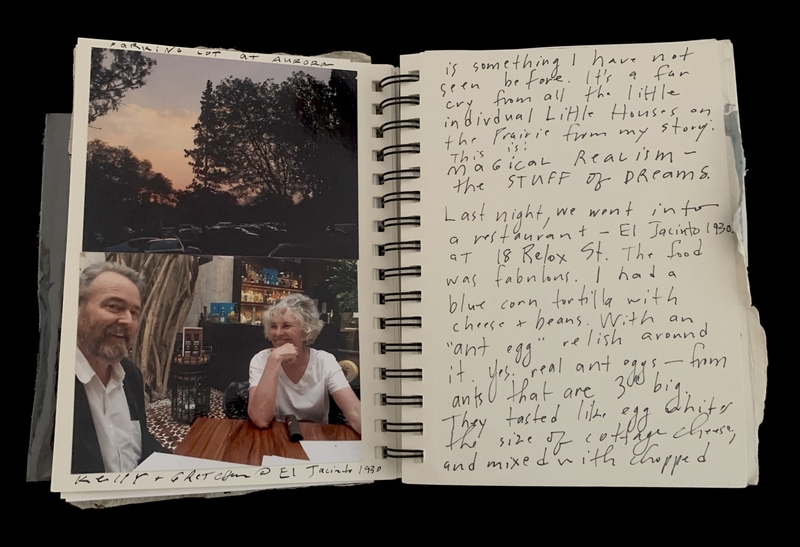 PARKING LOT AT AURORA
KELLY + GRETCHEN @ El Jacinto 1930
is something I have not
seen before. It's a far
cry from all the little
indivdual LiHle Houses on
the Prairie from my story.
This is:
MAGICAL REALISM –
the STUFF of DREAMS.
Last night, we went into
a restaurant – El Jacinto 1930.
at 18 Relox St. The food
was fabulous. I had a
blue corn tortilla with
cheese + beans. With an
"ant egg" relish around
it. Yes. real ant eggs – from
ants that are 3" big.
They tasted like egg whites
the size of cottage cheese,
and mixed with chopped